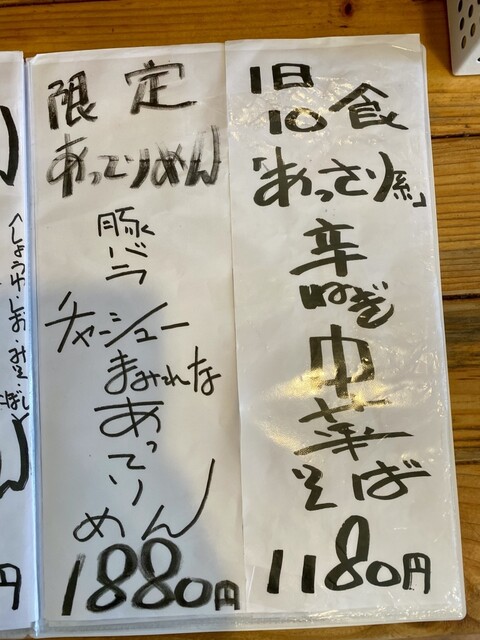 1日
10食
「あっさり系」
辛
ねぎ
中
華
そば
1180円
限定
あってりめん
豚
バラ
チャーシュー
まみれな
あっ
てり
めん
1880円
〈しょうゆ・しお・みそ・
にぼし〉
円